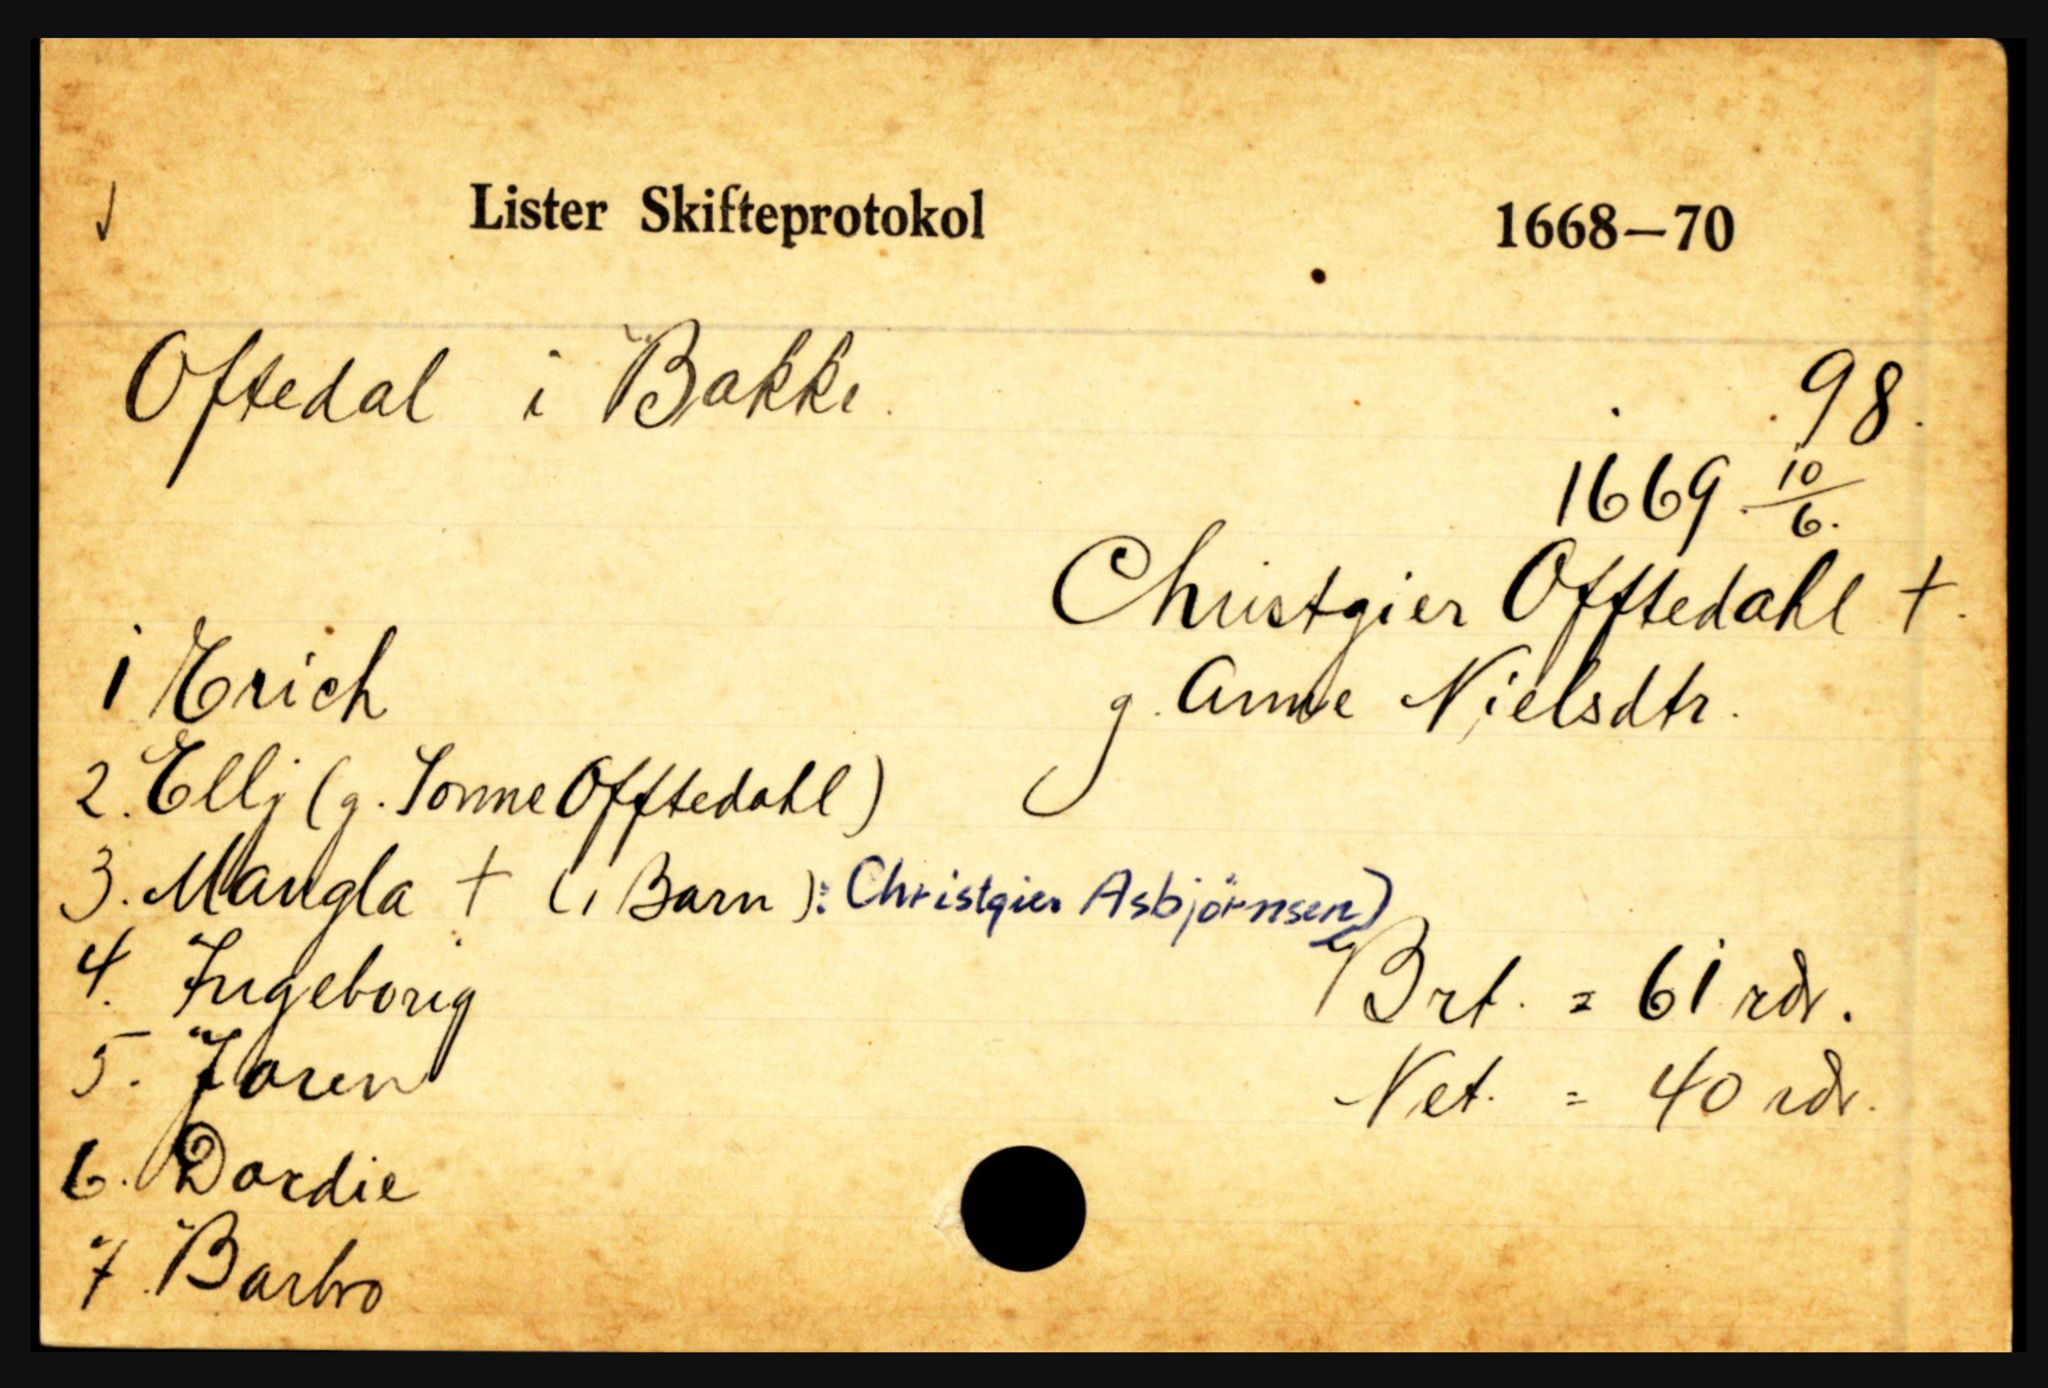 Lister Skifteprotokol 1668—70
Oftedal i Bakke. 98.
1669 10/6.
Christgier Offtedahl +.
g. Anne Nielsdtr.
1 Erich
2. Ellj (g. Tonne Offtedahl)
3. Mangla + (1 Barn): Christgier Asbjörnsen)
4. Ingeborig
5. Joren
6. Dordie
7. Barbro
Brt. = 61 rdr.
Net. = 40 rdr.